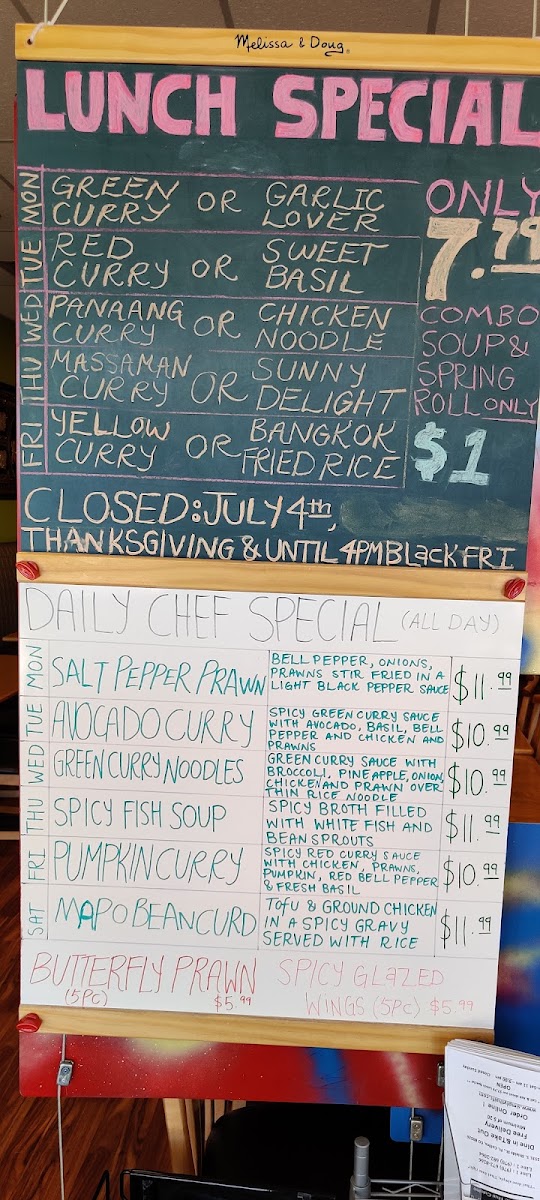 Melissa & Doug®
LUNCH SPECIAL
MON
GREEN CURRY OR GARLIC LOVER
TUE
RED CURRY OR SWEET BASIL
WED
PANAANG CURRY OR CHICKEN NOODLE
THU
MASSAMAN CURRY OR SUNNY DELIGHT
FRI
YELLOW CURRY OR BANGKOK FRIED RICE
ONLY
7.79
COMBO
SOUP &
SPRING
ROLL ONLY
$1
CLOSED: JULY 4th,
THANKSGIVING & UNTIL 4PM BLACK FRI
DAILY CHEF SPECIAL (ALL DAY)
MON
SALT PEPPER PRAWN
BELL PEPPER, ONIONS,
PRAWNS STIR FRIED IN A
LIGHT BLACK PEPPER SAUCE
$11.99
TUE
AVOCADO CURRY
SPICY GREEN CURRY SAUCE
WITH AVOCADO, BASIL, BELL
PEPPER AND CHICKEN AND
PRAWNS
$10.99
WED
GREEN CURRY NOODLES
GREEN CURRY SAUCE WITH
BROCCOLI, PINEAPPLE, ONION,
CHICKEN AND PRAWN OVER
THIN RICE NOODLE
$10.99
THU
SPICY FISH SOUP
SPICY BROTH FILLED
WITH WHITE FISH AND
BEAN SPROUTS
$11.99
FRI
PUMPKIN CURRY
SPICY RED CURRY SAUCE
WITH CHICKEN, PRAWNS,
PUMPKIN, RED BELL PEPPER
& FRESH BASIL
$10.99
SAT
MAPO BEAN CURD
TOFU & GROUND CHICKEN
IN A SPICY GRAVY
SERVED WITH RICE
$11.99
BUTTERFLY PRAWN
(5PC) $5.99
SPICY GLAZED
WINGS (5PC) $5.99
Dine in & Take Out
Free Delivery
Order Online
OPEN